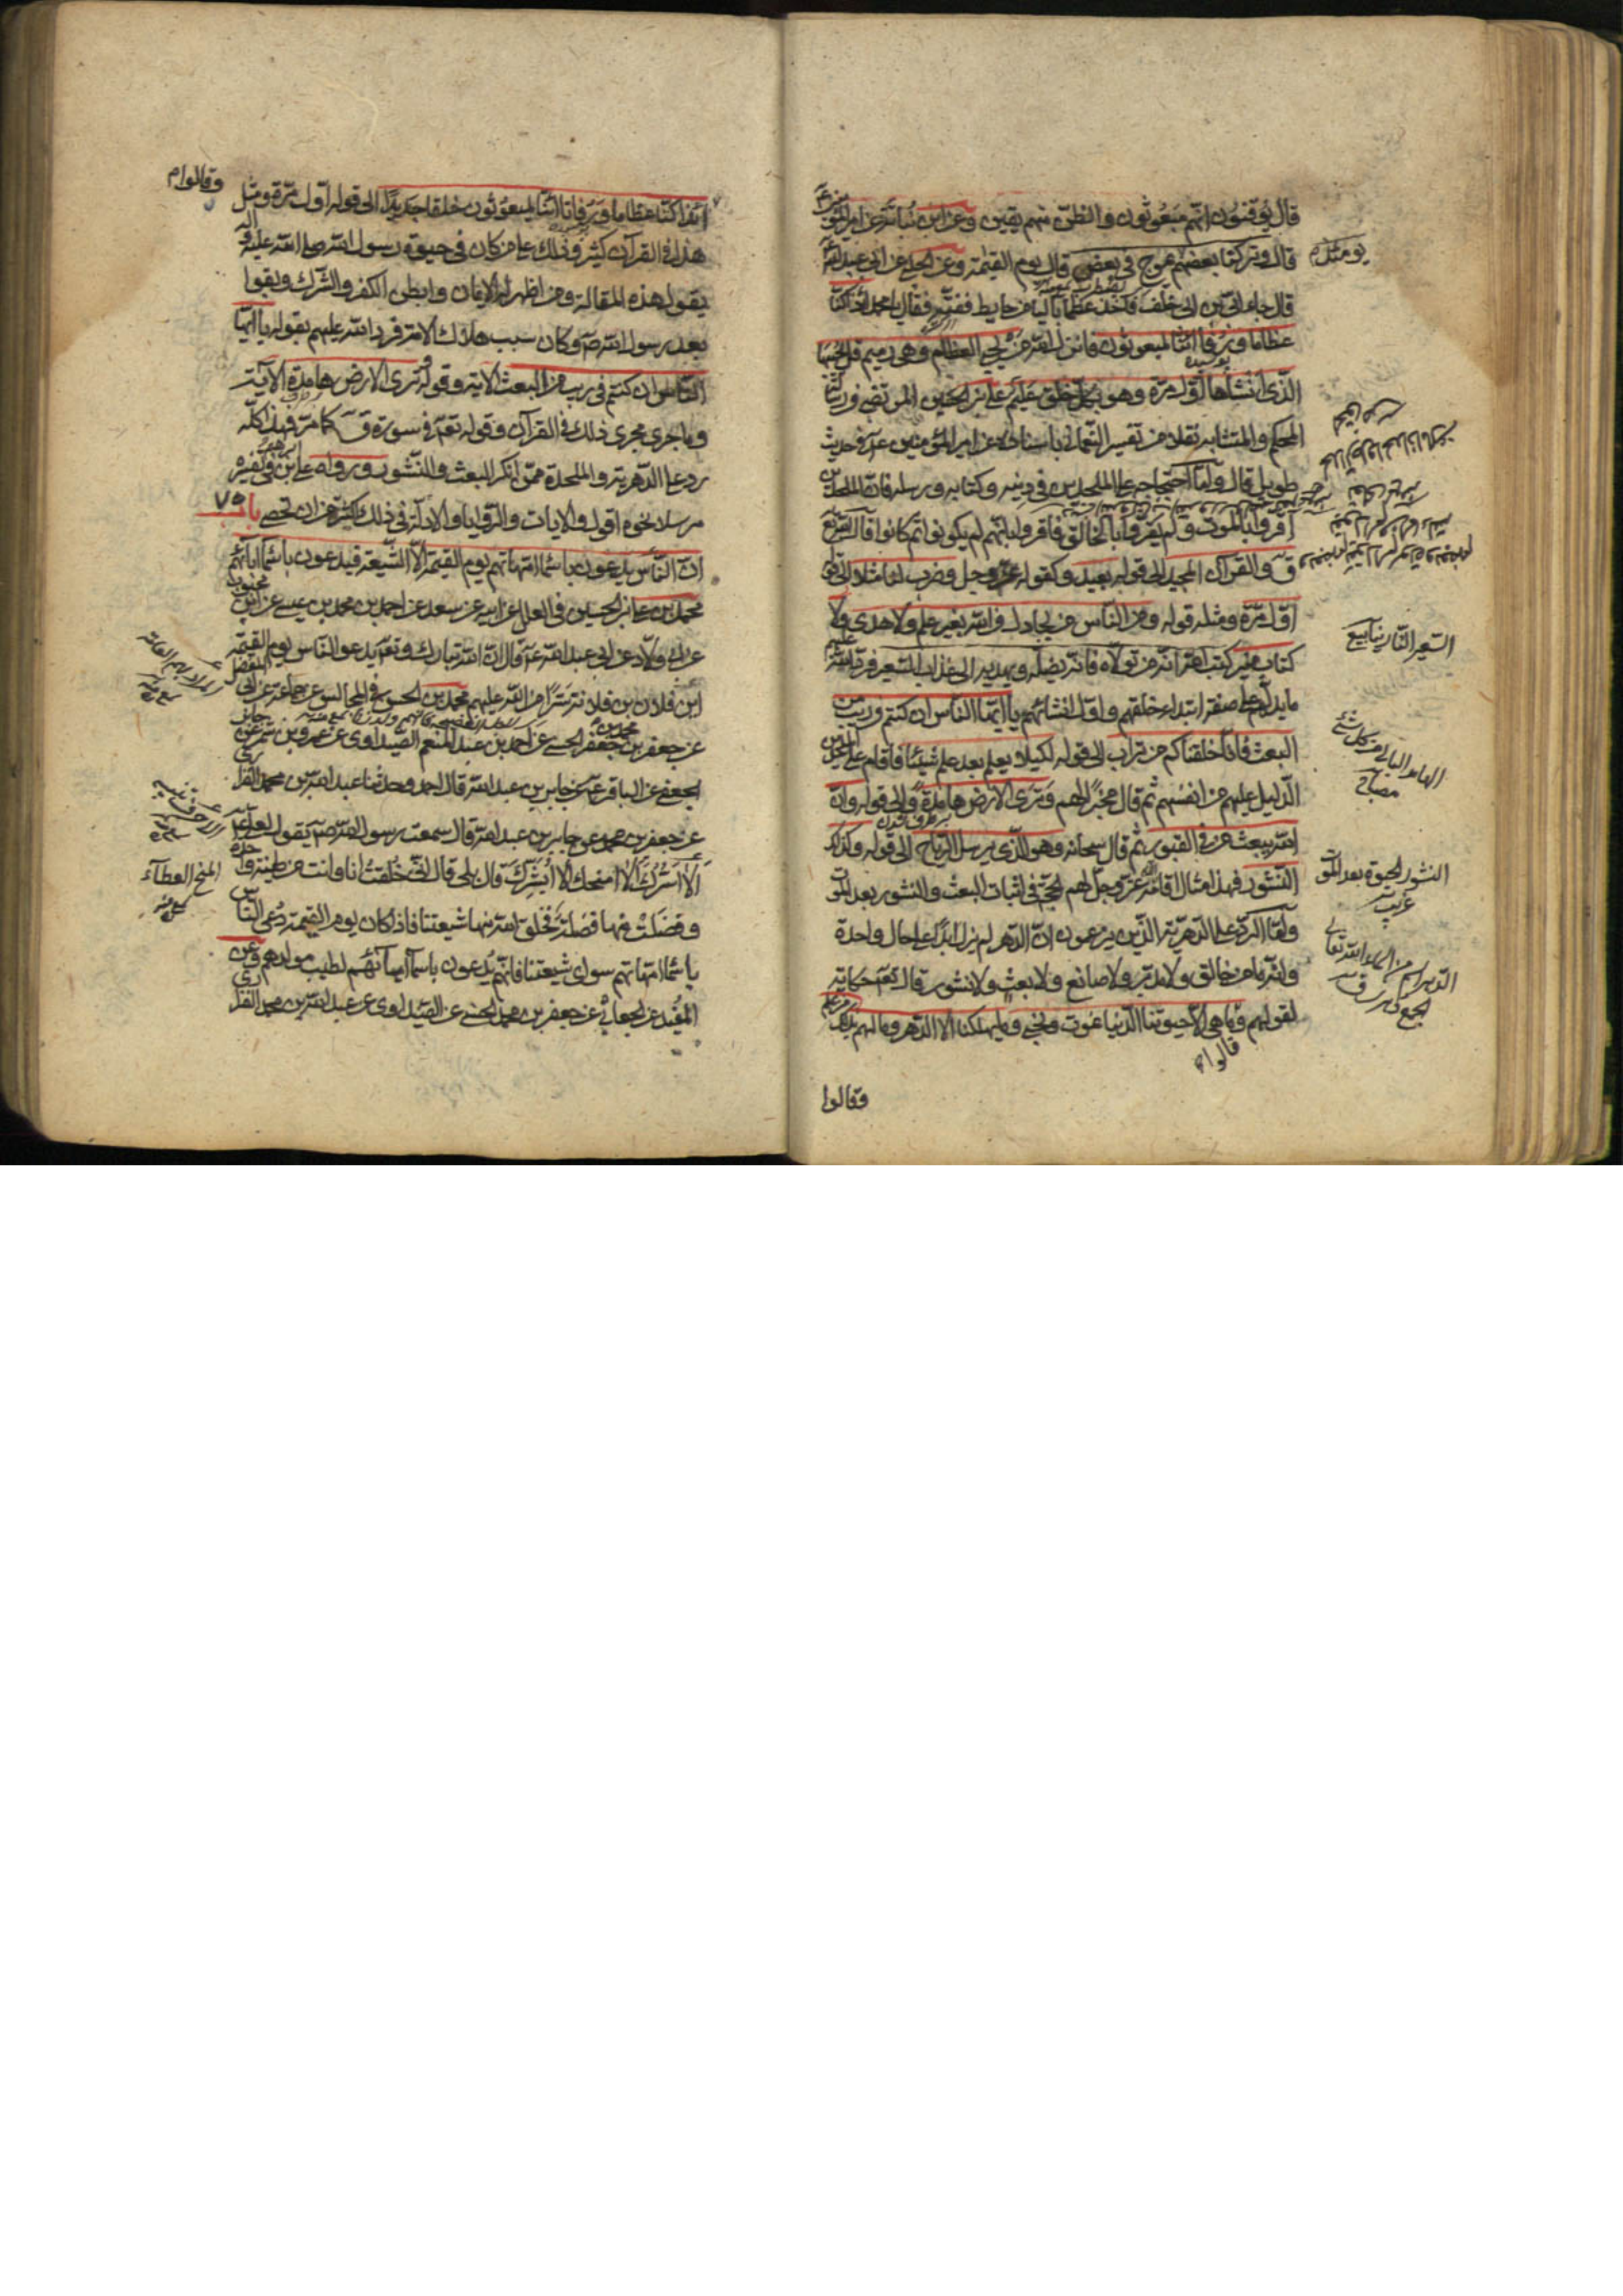 قال يوقنون انهم مبعوثون والظن منهم يقين وعن ابن نباتة عن امير المؤمنين ع
قال وتركنا بعضهم يموج في بعض قال يوم القيمة وعن الحلبي عن ابي عبد الله
يومئذ م
قال جاء ابي بن خلف فاخذ عظما باليا من حايط ففته فقال يا محمد ائذا كنا
عظاما ورفاتا ائنا لمبعوثون فانزل الله من يحي العظام وهي رميم قل يحييها
الذي انشاها اول مرة وهو بكل خلق عليم علي بن الحسين المرتضى في رسالة
المحكم والمتشابه نقلا من تفسير النعماني باسناده عن امير المؤمنين ع في حديث
طويل قال واما احتجاجه على الملحدين في دينه وكتابه ورسله فان الملحدين
اقروا بالموت ولم يقروا بالخالق فاقروا بانهم لم يكونوا ثم كانوا قال الله تع
ق والقران المجيد الى قوله بعيد وكقوله عز وجل وضرب لنا مثلا الى قوله
اول مرة ومثله قوله ومن الناس من يجادل في الله بغير علم ولا هدى ولا
كتاب منير كتب عليه انه من تولاه فانه يضله ويهديه الى عذاب السعير فرد الله عليهم
السعير النار ينابيع
ما يدلهم على صفة ابتداء خلقهم واول انشائهم يا ايها الناس ان كنتم في ريب من
البعث فانا خلقناكم من تراب الى قوله لكيلا يعلم بعد علم شيئا فاقام على الملحدين
الهامد البالي من كل شئ
مصباح
الدليل عليهم من انفسهم ثم قال مخبرا لهم وترى الارض هامدة الى قوله وان
الله يبعث من في القبور ثم قال سبحانه وهو الذي يرسل الرياح الى قوله وكذلك
النشور فهذا مثال اقامه الله عز وجل لهم الحجة في اثبات البعث والنشور بعد الموت
النشور الحيوة بعد الموت
غريب
واما الرد على الدهرية الذين يزعمون ان الدهر لم يزل ابدا على حال واحدة
وانه ما من خالق ولا مدبر ولا صانع ولا بعث ولا نشور قال تع حكاية
الدهر اسم من اسماء الله تعالى
لقولهم وقالوا ما هي الا حيوتنا الدنيا نموت ونحيى وما يهلكنا الا الدهر وما لهم بذلك من علم
قالوا م
وقالوا
وقالوا م
ائذا كنا عظاما ورفاتا ائنا لمبعوثون خلقا جديدا الى قوله اول مرة ومثل
هذا في القرآن كثير وذلك على من كان في حيوة رسول الله صلى الله عليه وآله
يقول هذه المقالة ومن اظهر له الايمان وابطن الكفر والشرك وبقوا
بعد رسول الله ص وكان سبب هلاك الامة فرد الله عليهم بقوله يا ايها
الناس ان كنتم في ريب من البعث الاية وقوله وترى الارض هامدة الآية
وما جرى مجرى ذلك في القرآن وقوله تع في سورة ق كما مر فهذا كله
رد على الدهرية والملحدة ممن انكر البعث والنشور ورواه علي بن ابراهيم في تفسيره
مرسلا نحوه اقول والايات والروايات والادلة في ذلك اكثر من ان تحصى باب ٧٥
ان الناس يدعون باسماء امهاتهم يوم القيمة الا الشيعة فيدعون باسماء آبائهم
محمد بن علي بن الحسين في العلل عن ابيه عن سعد عن احمد بن محمد بن عيسى عن ابن محبوب
عن ابي ولاد عن ابي عبد الله ع قال ان الله تبارك وتع يدعو الناس يوم القيمة
ابن فلان بن فلان سترا من الله عليهم محمد بن الحسن في المجالس عن جماعة عن ابي المفضل
عن جعفر بن محمد بن جعفر الحسني عن احمد بن عبد المنعم الصيداوي عن عمرو بن شمر عن جابر
الجعفي عن الباقر ع عن جابر بن عبد الله قال احمد وحدثنا عبد الله بن محمد الفزاري
عن جعفر بن محمد عن جابر بن عبد الله قال سمعت رسول الله ص يقول لعلي ع
الا اسرك الا امنحك الا ابشرك قال بلى قال اني خلقت انا وانت من طينة واحدة
المنح العطآء
وفضلت منها فضلة فخلق الله منها شيعتنا فاذا كان يوم القيمة دعي الناس
باسماء امهاتهم سوى شيعتنا فانهم يدعون باسمآء آبائهم لطيب مولدهم وعن
المفيد عن الجعابي عن جعفر بن محمد الحسني عن الصيداوي عن عبد الله بن محمد الفزاري